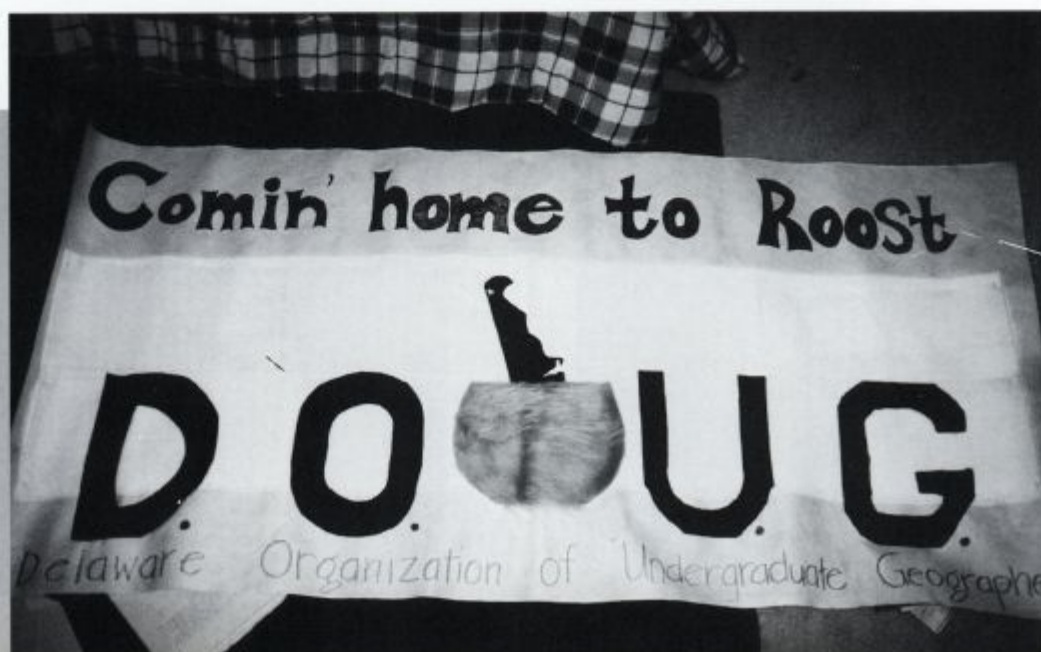 Comin' home to Roost
D. O. U. G.
Delaware Organization of Undergraduate Geographe